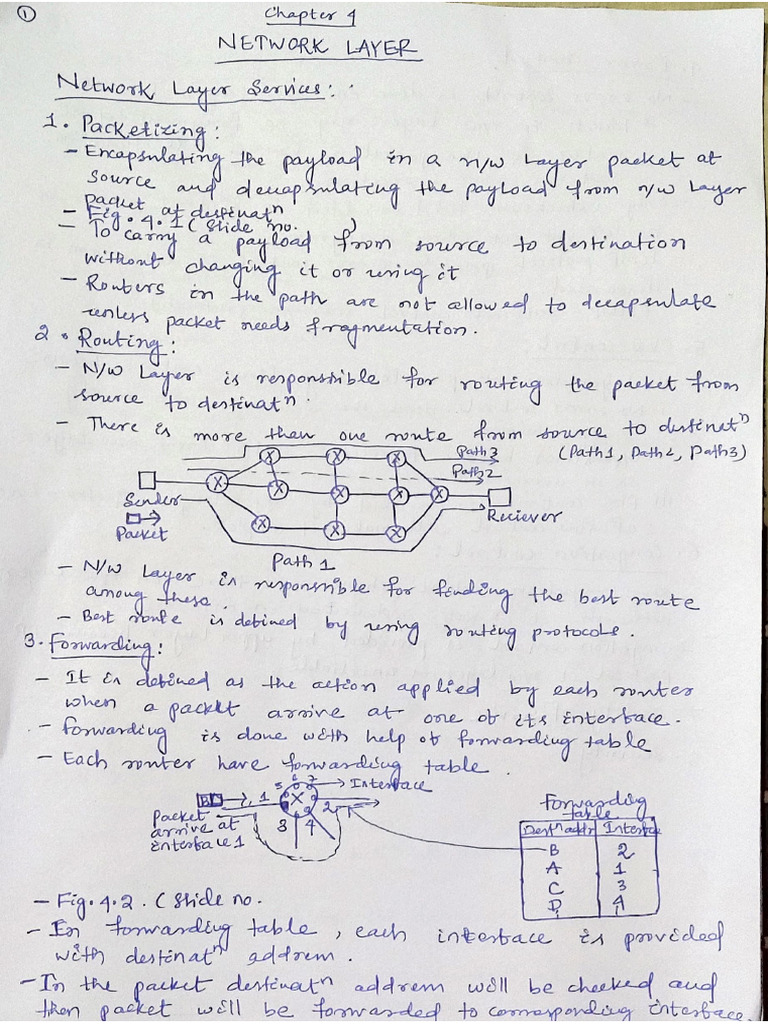 ①
Chapter 4
NETWORK LAYER
Network Layer Services:
1. Packetizing:
- Encapsulating the payload in a n/w Layer packet at
source and decapsulating the payload from n/w Layer
packet at destinatⁿ
- Fig. 4.1 (Slide no. )
- To carry a payload from source to destination
without changing it or using it
- Routers in the path are not allowed to decapsulate
unless packet needs fragmentation.
2. Routing:
- N/w Layer is responsible for routing the packet from
source to destinatⁿ.
- There is more than one route from source to destinatⁿ
(Path1, Path2, Path3)
Path 3
Path 2
Sender
Reciever
Packet
Path 1
- N/w Layer is responsible for finding the best route
among these.
- Best route is defined by using routing protocols.
3. Forwarding:
- It is defined as the action applied by each router
when a packet arrive at one of its interface.
- forwarding is done with help of forwarding table
- Each router have forwarding table.
B 1 5 6 7 Interface
2
3 4
Packet
arrive at
interface 1
Forwarding
table
Destⁿ addr Interface
B 2
A 1
C 3
D 4
- Fig. 4.2. (Slide no.
- In forwarding table, each interface is provided
with destinatⁿ address.
- In the packet destinatⁿ address will be checked and
then packet will be forwarded to corresponding interface.